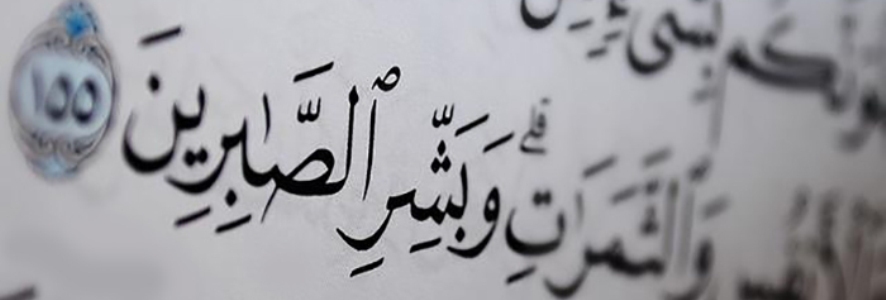 بِشَىْءٍ
وَٱلثَّمَرَٰتِ ۗ وَبَشِّرِ ٱلصَّـٰبِرِينَ ١٥٥